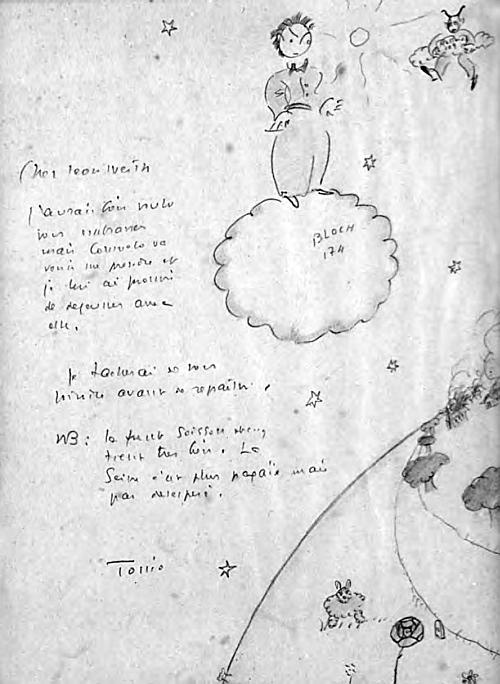 Cher Léon Werth
J'aurais bien voulu
vous
mais Consuelo va
venir me prendre et
je lui ai promis
de déjeuner avec
elle.
Je tacherai de vous
avant de repartir.
NB : le front Soissons
tient très bien. La
Seine c'est plus pagaïe mais
pas désespéré.
Tonio
BLOCH
174